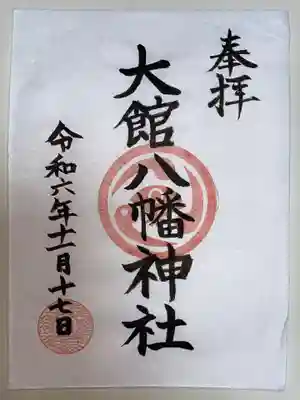 奉拝
大館八幡神社
令和六年十一月十七日